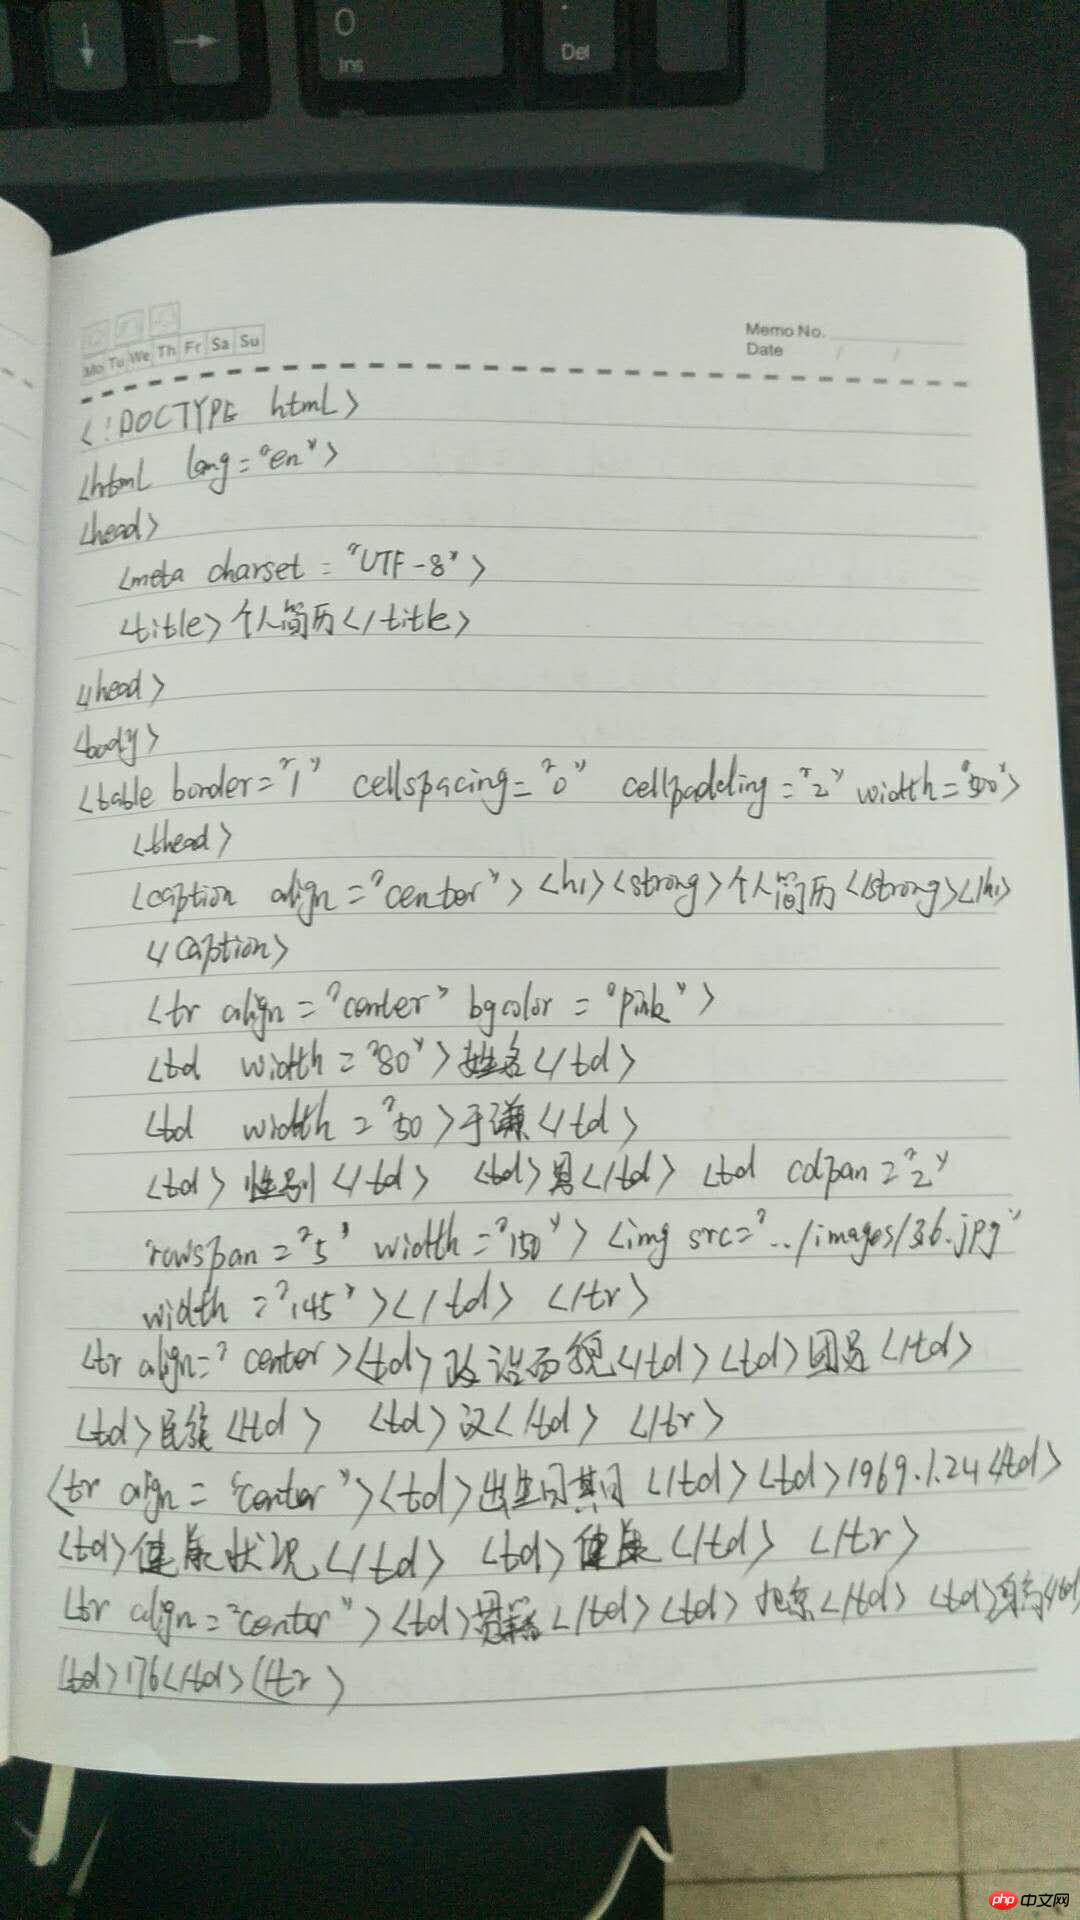 0
Ins
Del
Mo Tu We Th Fr Sa Su
Memo No.
Date / /
<!DOCTYPE html>
<html lang="en">
<head>
<meta charset="UTF-8">
<title>个人简历</title>
</head>
<body>
<table border="1" cellspacing="0" cellpadding="2" width="500">
<thead>
<caption align="center"><h1><strong>个人简历</strong></h1>
</caption>
<tr align="center" bgcolor="pink">
<td width="80">姓名</td>
<td width="50>于谦</td>
<td>性别</td> <td>男</td> <td colspan="2"
rowspan="5" width="150"><img src="../images/36.jpg"
width="145"></td> </tr>
<tr align="center><td>政治面貌</td><td>团员</td>
<td>民族</td> <td>汉</td> </tr>
<tr align="center"><td>出生日期</td><td>1969.1.24</td>
<td>健康状况</td> <td>健康</td> </tr>
<tr align="center"><td>籍</td><td>北京</td> <td>身高</td>
<td>176</td></tr>
php 中文网